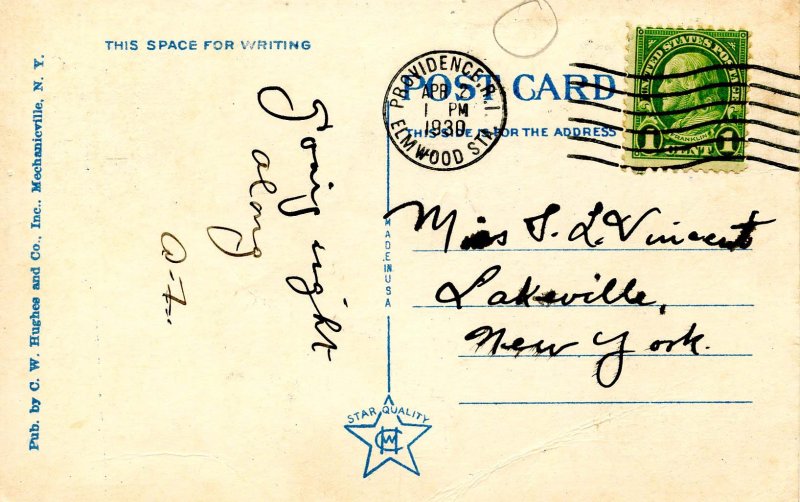 THIS SPACE FOR WRITING
Going right
along
Pub. by C. W. Hughes and Co., Inc., Mechanicville, N. Y.
MADE IN USA
STAR QUALITY
POST CARD
THIS SIDE IS FOR THE ADDRESS
PROVIDENCE R.I.
APR 2
1 PM
1930
ELMWOOD STA
UNITED STATES POSTAGE
FRANKLIN
1 1
CENT
Miss
L. Vincent
Lakeville,
New York.